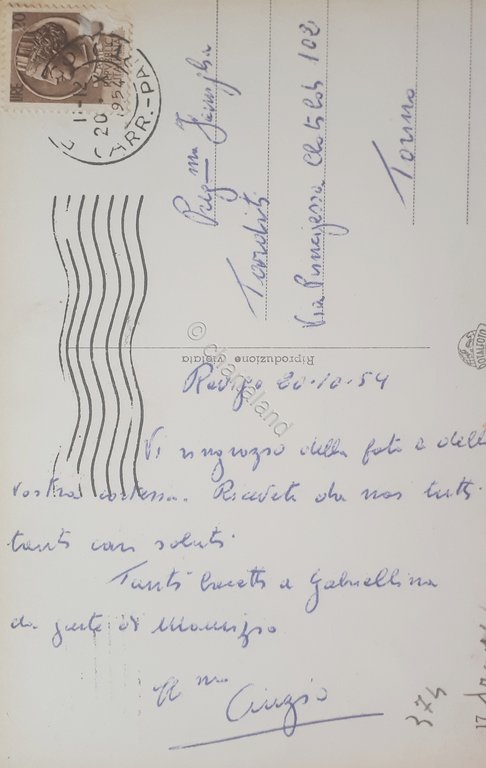 Rovigo 20-10-54
Vi ringrazio della foto e della
vostra cortesia. Ricevete da noi tutti
tanti cari saluti.
Tanti bacetti a Gabriellina
da parte di Maurizio
Aff mo
Cinzio
Preg ma Famiglia
Tarditi
Via Principessa Clotilde 102
Torino
Riproduzione vietata
20
11-12
20
1954
ARR.-PA
374
17
© chartaland